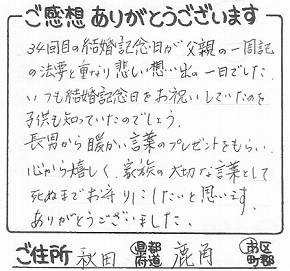 ご感想ありがとうございます
34回目の結婚記念日が父親の一周記
の法要と重なり悲しい想い出の一日でした。
いつも結婚記念日をお祝いしていたのを
子供も知っていたのでしょう。
長男から暖かい言葉のプレゼントをもらい、
心から嬉しく、家族の大切な言葉として
死ぬまでお守りにしたいと思います。
ありがとうございました。
ご住所 秋田 都道府県 鹿角 市区町郡